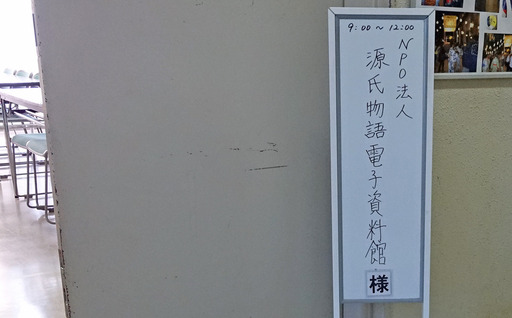 9:00～12:00
NPO法人
源氏物語電子資料館
様